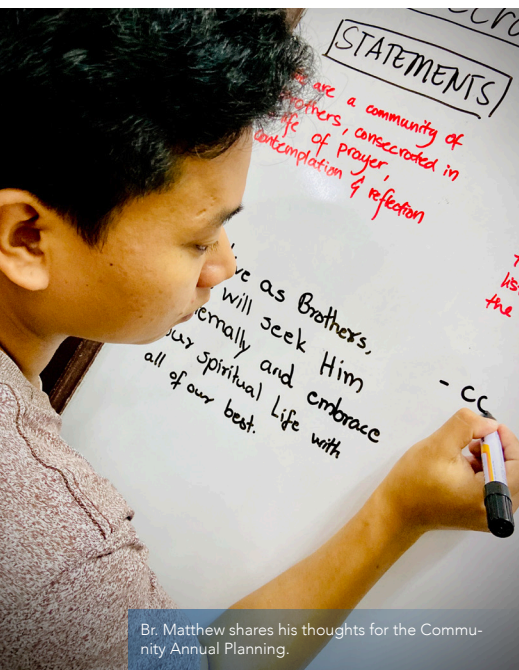 STATEMENTS
are a community of
brothers, consecrated in
life of prayer,
contemplation & reflection
the
as Brothers,
will seek Him
and embrace
our spiritual Life with
all of our best.
- CC
Br. Matthew shares his thoughts for the Commu-
nity Annual Planning.